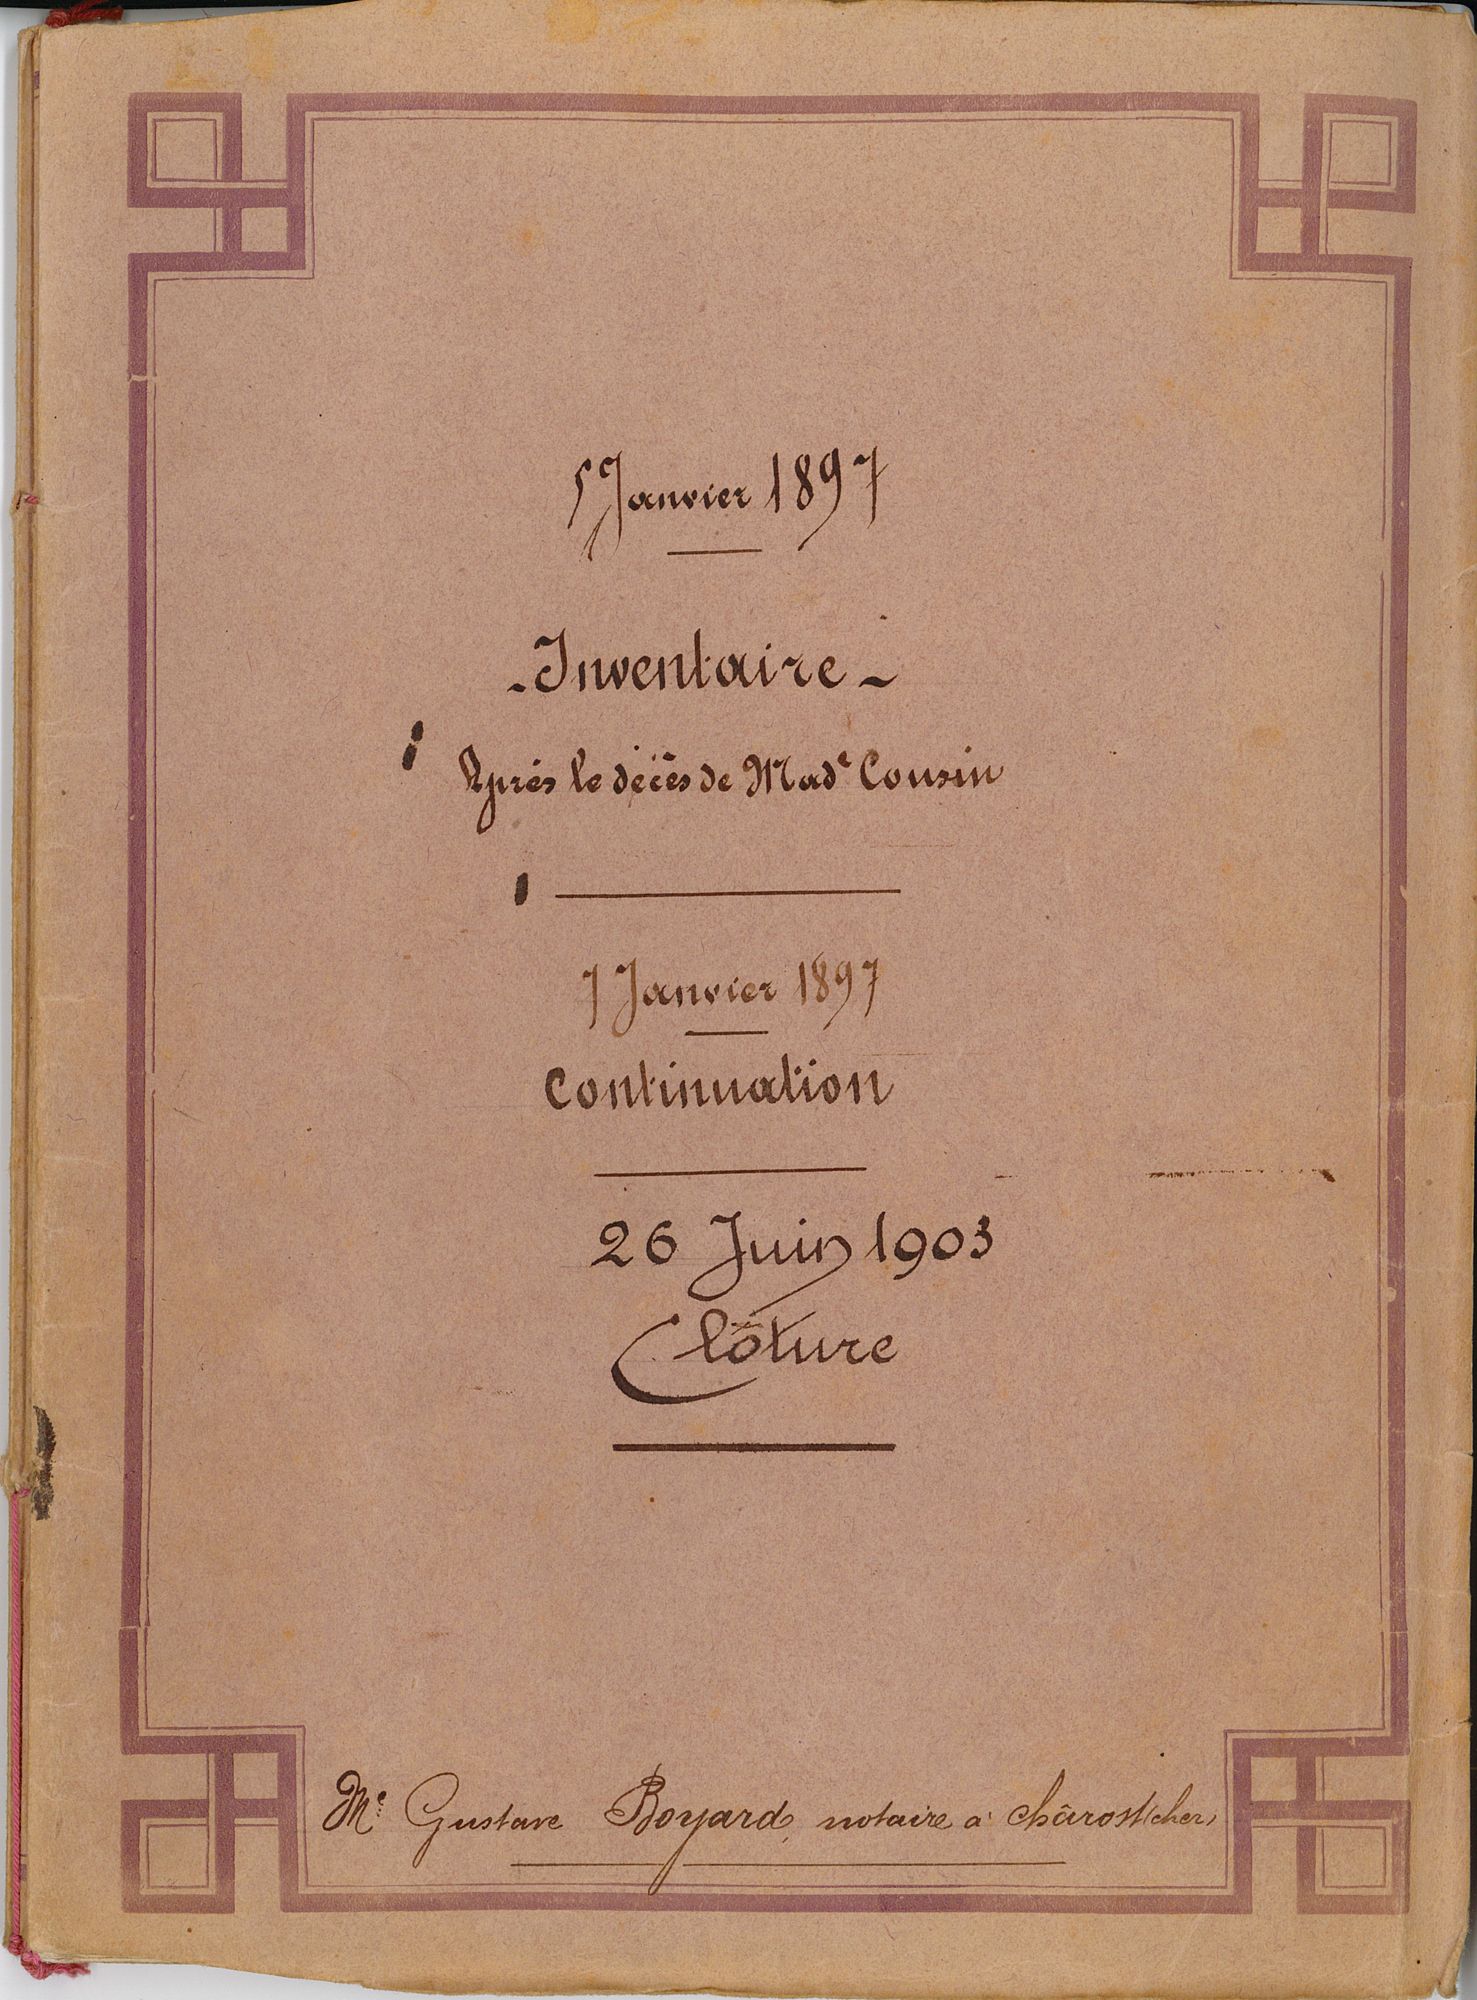 5 Janvier 1897
- Inventaire -
Après le décès de Made Cousin
7 Janvier 1897
Continuation
26 Juin 1903
Clôture
Me Gustave Boyard, notaire à Chârost (cher)